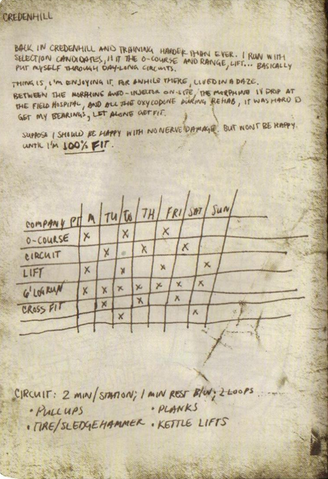 CREDENHILL
BACK IN CREDENHILL AND TRAINING HARDER THAN EVER. I RUN WITH
SELECTION CANDIDATES, HIT THE O-COURSE AND RANGE, LIFT... BASICALLY
PUT MYSELF THROUGH DAY-LONG CIRCUITS.
THING IS, I'M ENJOYING IT. FOR AWHILE THERE, LIVED IN A DAZE.
BETWEEN THE MORPHINE AUTO-INJECTOR ON-SITE, THE MORPHINE IV DROP AT
THE FIELD HOSPITAL, AND ALL THE OXYCODONE DURING REHAB, IT WAS HARD TO
GET MY BEARINGS, LET ALONE GET FIT.
SUPPOSE I SHOULD BE HAPPY WITH NO NERVE DAMAGE. BUT WON'T BE HAPPY
UNTIL I'M 100% FIT.
COMPANY PT M TU TH FRI SAT SUN
O-COURSE X X X
CIRCUIT X X X
LIFT X X X
6' LOG RUN X X X X X X
CROSS FIT X X
X X
CIRCUIT: 2 MIN/STATION; 1 MIN REST B/W; 2 LOOPS
• PULLUPS • PLANKS
• TIRE/SLEDGEHAMMER • KETTLE LIFTS